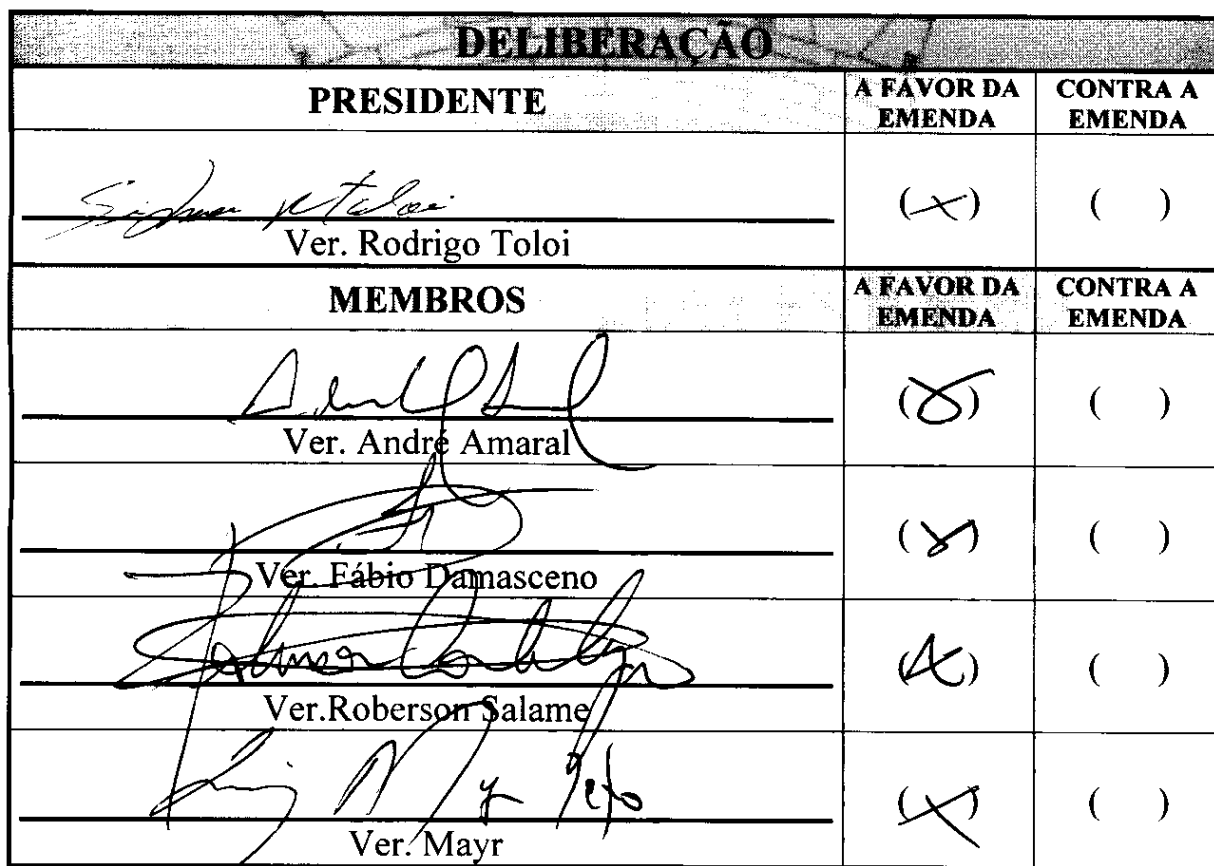 DELIBERAÇÃO
PRESIDENTE
A FAVOR DA EMENDA
CONTRA A EMENDA
(X)
( )
Ver. Rodrigo Toloi
MEMBROS
A FAVOR DA EMENDA
CONTRA A EMENDA
(X)
( )
Ver. André Amaral
(X)
( )
Ver. Fábio Damasceno
(X)
( )
Ver.Roberson Salame
(X)
( )
Ver. Mayr